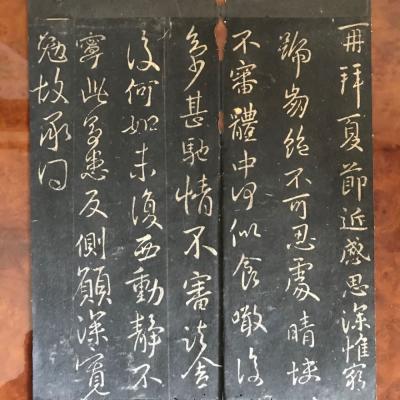 再拜夏節近感思深惟窮
號崩絕不可忍處晴快
不審體中何似食噉復
多少甚馳情不審諸舍
復何如未復西動靜不
寧此多患反側願深寬
勉故承問